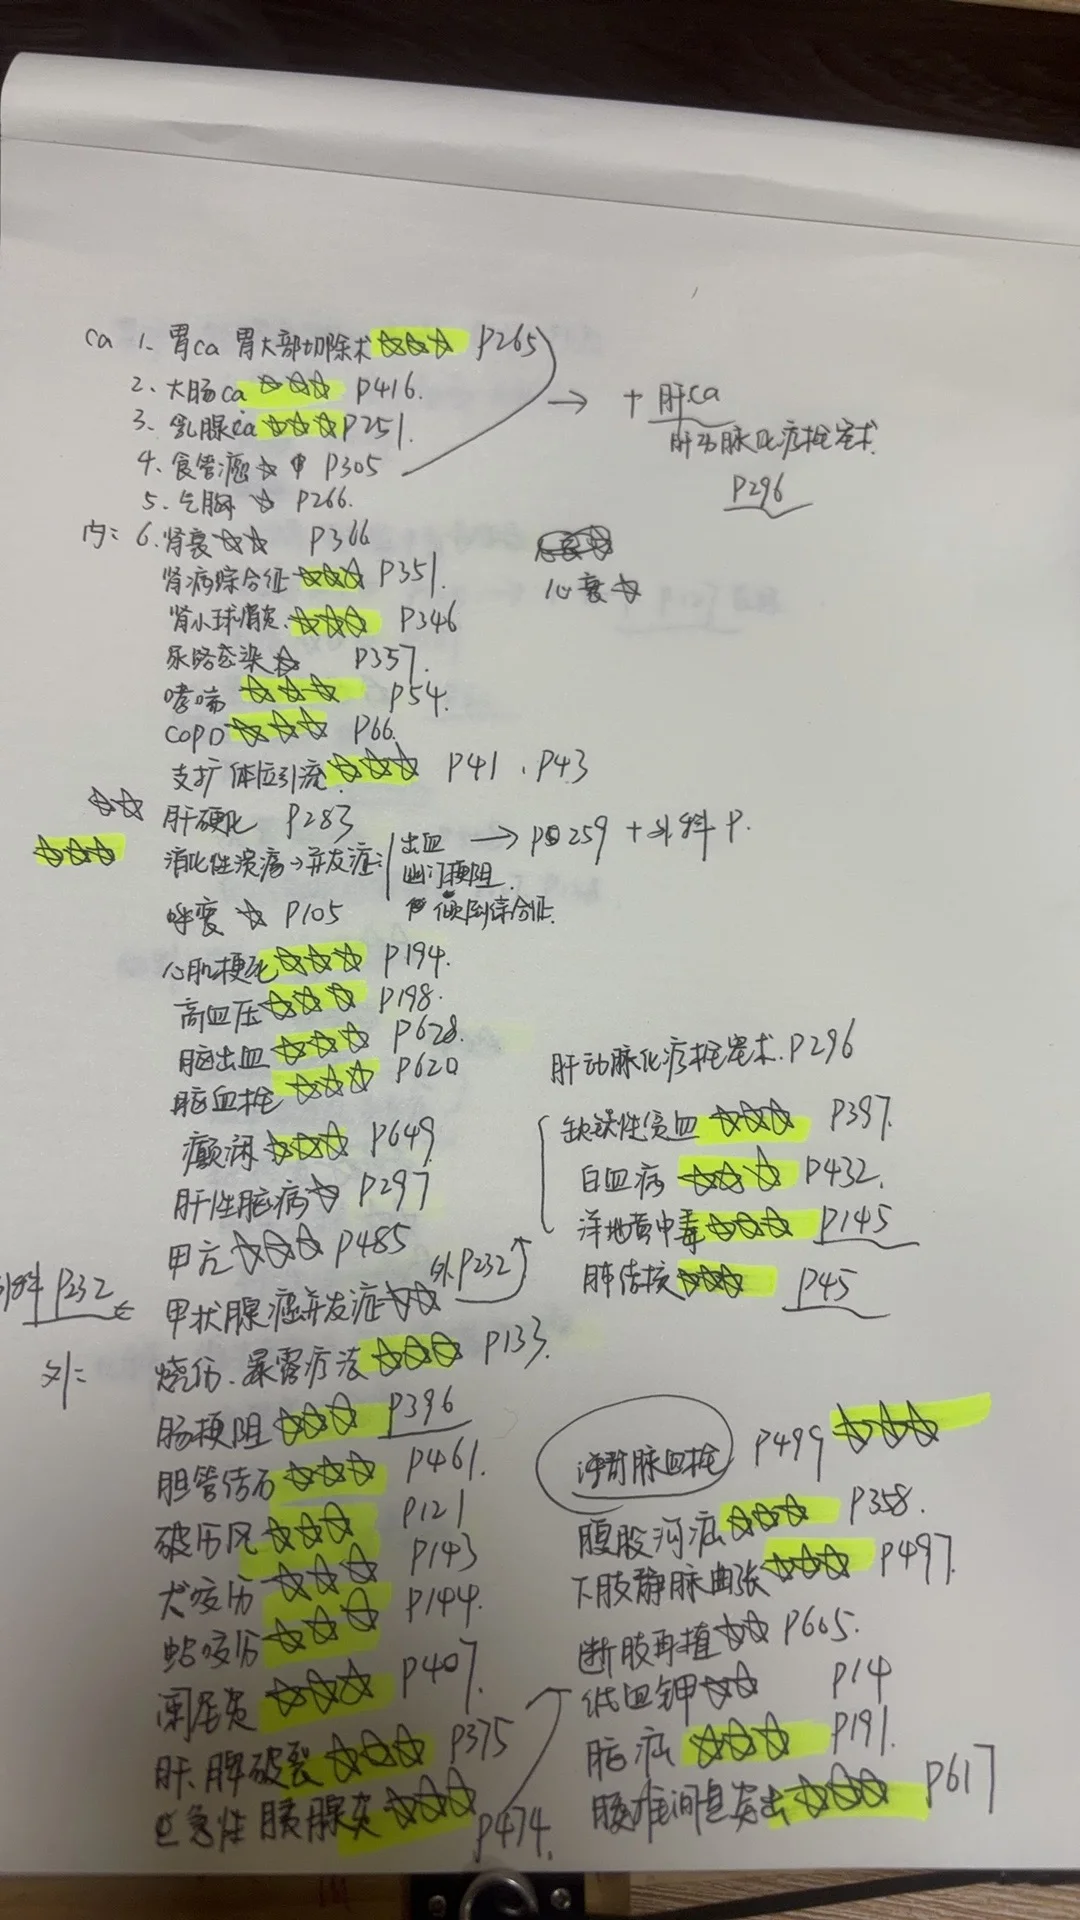 ca 1、胃ca 胃大部切除术☆☆☆ P265
2、大肠ca ☆☆☆ P416.
3、乳腺ca ☆☆☆ P251.
4、食管癌☆ P305
5、气胸 ☆ P266.
→ + 肝ca
肝动脉化疗栓塞术.
P296
内: 6.肾衰☆☆ P366
心衰☆
肾病综合征☆☆☆ P351.
肾小球肾炎.☆☆☆ P346
尿路感染☆ P357.
哮喘 ☆☆☆ P54.
COPD ☆☆☆ P66.
支扩 体位引流☆☆☆ P41 、P43
☆☆ 肝硬化 P283
☆☆☆ 消化性溃疡→并发症: 出血 → P259 + 外科 P.
幽门梗阻.
倾倒综合征.
呼衰 ☆ P105
心肌梗死☆☆☆ P194.
高血压☆☆☆ P198.
脑出血☆☆☆ P628.
脑血栓☆☆☆ P620
癫痫☆☆☆ P649
肝性脑病☆ P297
甲亢☆☆☆ P485
外科 P232 ← 甲状腺癌并发症☆☆ 外P232
肝动脉化疗栓塞术.P296
缺铁性贫血☆☆☆ P397.
白血病 ☆☆☆ P432.
洋地黄中毒☆☆☆ P145
肺结核☆☆☆ P45
外: 烧伤.暴露疗法☆☆☆ P133.
肠梗阻☆☆☆ P396
胆管结石☆☆☆ P461.
破伤风☆☆☆ P121
犬咬伤☆☆☆ P143
蛇咬伤☆☆☆ P144.
阑尾炎☆☆☆ P407.
肝、脾破裂☆☆☆ P375
急性胰腺炎☆☆☆ P474.
静脉血栓 P499 ☆☆☆
腹股沟疝☆☆☆ P358.
下肢静脉曲张☆☆☆ P497.
断肢再植☆☆ P605.
低血钾☆☆ P14
脑疝☆☆☆ P191.
腰椎间盘突出☆☆☆ P617